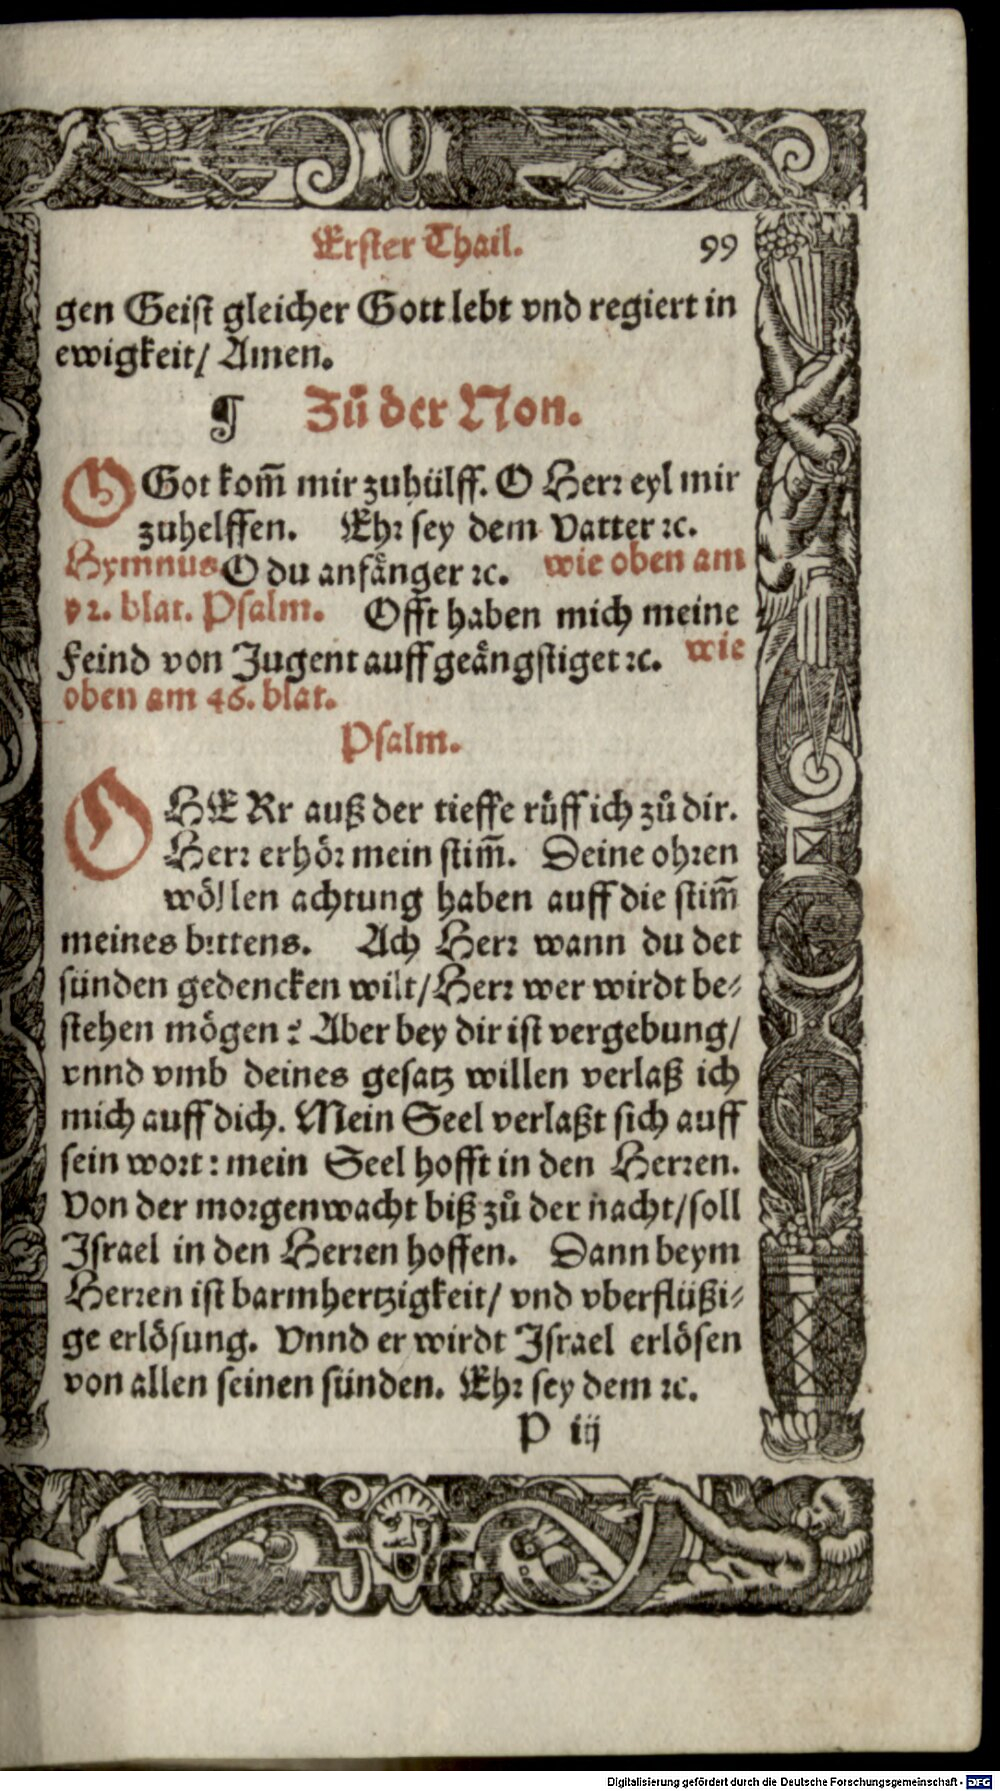 Erster Thail. 99
gen Geist gleicher Gott lebt vnd regiert in
ewigkeit/ Amen.
¶ Zů der Non.
O Got kom̄ mir zuhülff. O Herr eyl mir
zuhelffen. Ehr sey dem Vatter ꝛc.
Hymnus O du anfänger ꝛc. wie oben am
92. blat. Psalm. Offt haben mich meine
Feind von Jugent auff geängstiget ꝛc. wie
oben am 46. blat.
Psalm.
O HERr auß der tieffe rüff ich zů dir.
Herr erhör mein stim̄. Deine ohren
wöllen achtung haben auff die stim̄
meines bittens. Ach Herr wann du det
sünden gedencken wilt/ Herr wer wirdt be⸗
stehen mögen? Aber bey dir ist vergebung/
vnnd vmb deines gesatz willen verlaß ich
mich auff dich. Mein Seel verlaßt sich auff
sein wort: mein Seel hofft in den Herren.
Von der morgenwacht biß zů der nacht/ soll
Israel in den Herren hoffen. Dann beym
Herren ist barmhertzigkeit/ vnd vberflüßi⸗
ge erlösung. Vnnd er wirdt Israel erlösen
von allen seinen sünden. Ehr sey dem ꝛc.
P iij
Digitalisierung gefördert durch die Deutsche Forschungsgemeinschaft - DFG